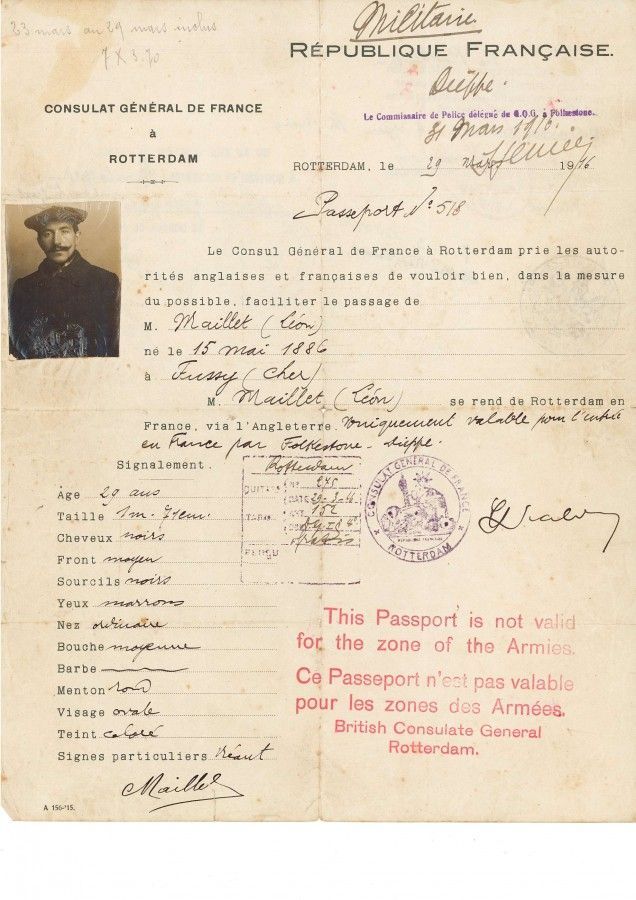 23 mars au 29 mars inclus
7 X 3.70
Militaire
RÉPUBLIQUE FRANÇAISE.
Dieppe.
Le Commissaire de Police délégué du G.Q.G. à Folkestone.
31 Mars 1916.
CONSULAT GÉNÉRAL DE FRANCE
à
ROTTERDAM
ROTTERDAM, le 29 mars 1916
Passeport No 518
Le Consul Général de France à Rotterdam prie les auto-
rités anglaises et françaises de vouloir bien, dans la mesure
du possible, faciliter le passage de
M. Maillet (Léon)
né le 15 mai 1886
à Fussy (Cher)
M. Maillet (Léon) se rend de Rotterdam en
France, via l'Angleterre. uniquement valable pour l'entrée
en France par Folkestone-Dieppe.
Signalement.
Age 29 ans
Taille 1m.
Cheveux noirs
Front moyen
Sourcils noirs
Yeux marrons
Nez ordinaire
Bouche moyenne
Barbe
Menton rond
Visage ovale
Teint coloré
Signes particuliers Néant
Maillet
A 156-'15.
Rotterdam
QUITTANCE
No 275
DATE 29-3-16
TARIF
ART. 152
PERÇU
Gratis
CONSULAT GÉNÉRAL DE FRANCE
RÉPUBLIQUE FRANÇAISE
ROTTERDAM
This Passport is not valid
for the zone of the Armies.
Ce Passeport n'est pas valable
pour les zones des Armées.
British Consulate General
Rotterdam.